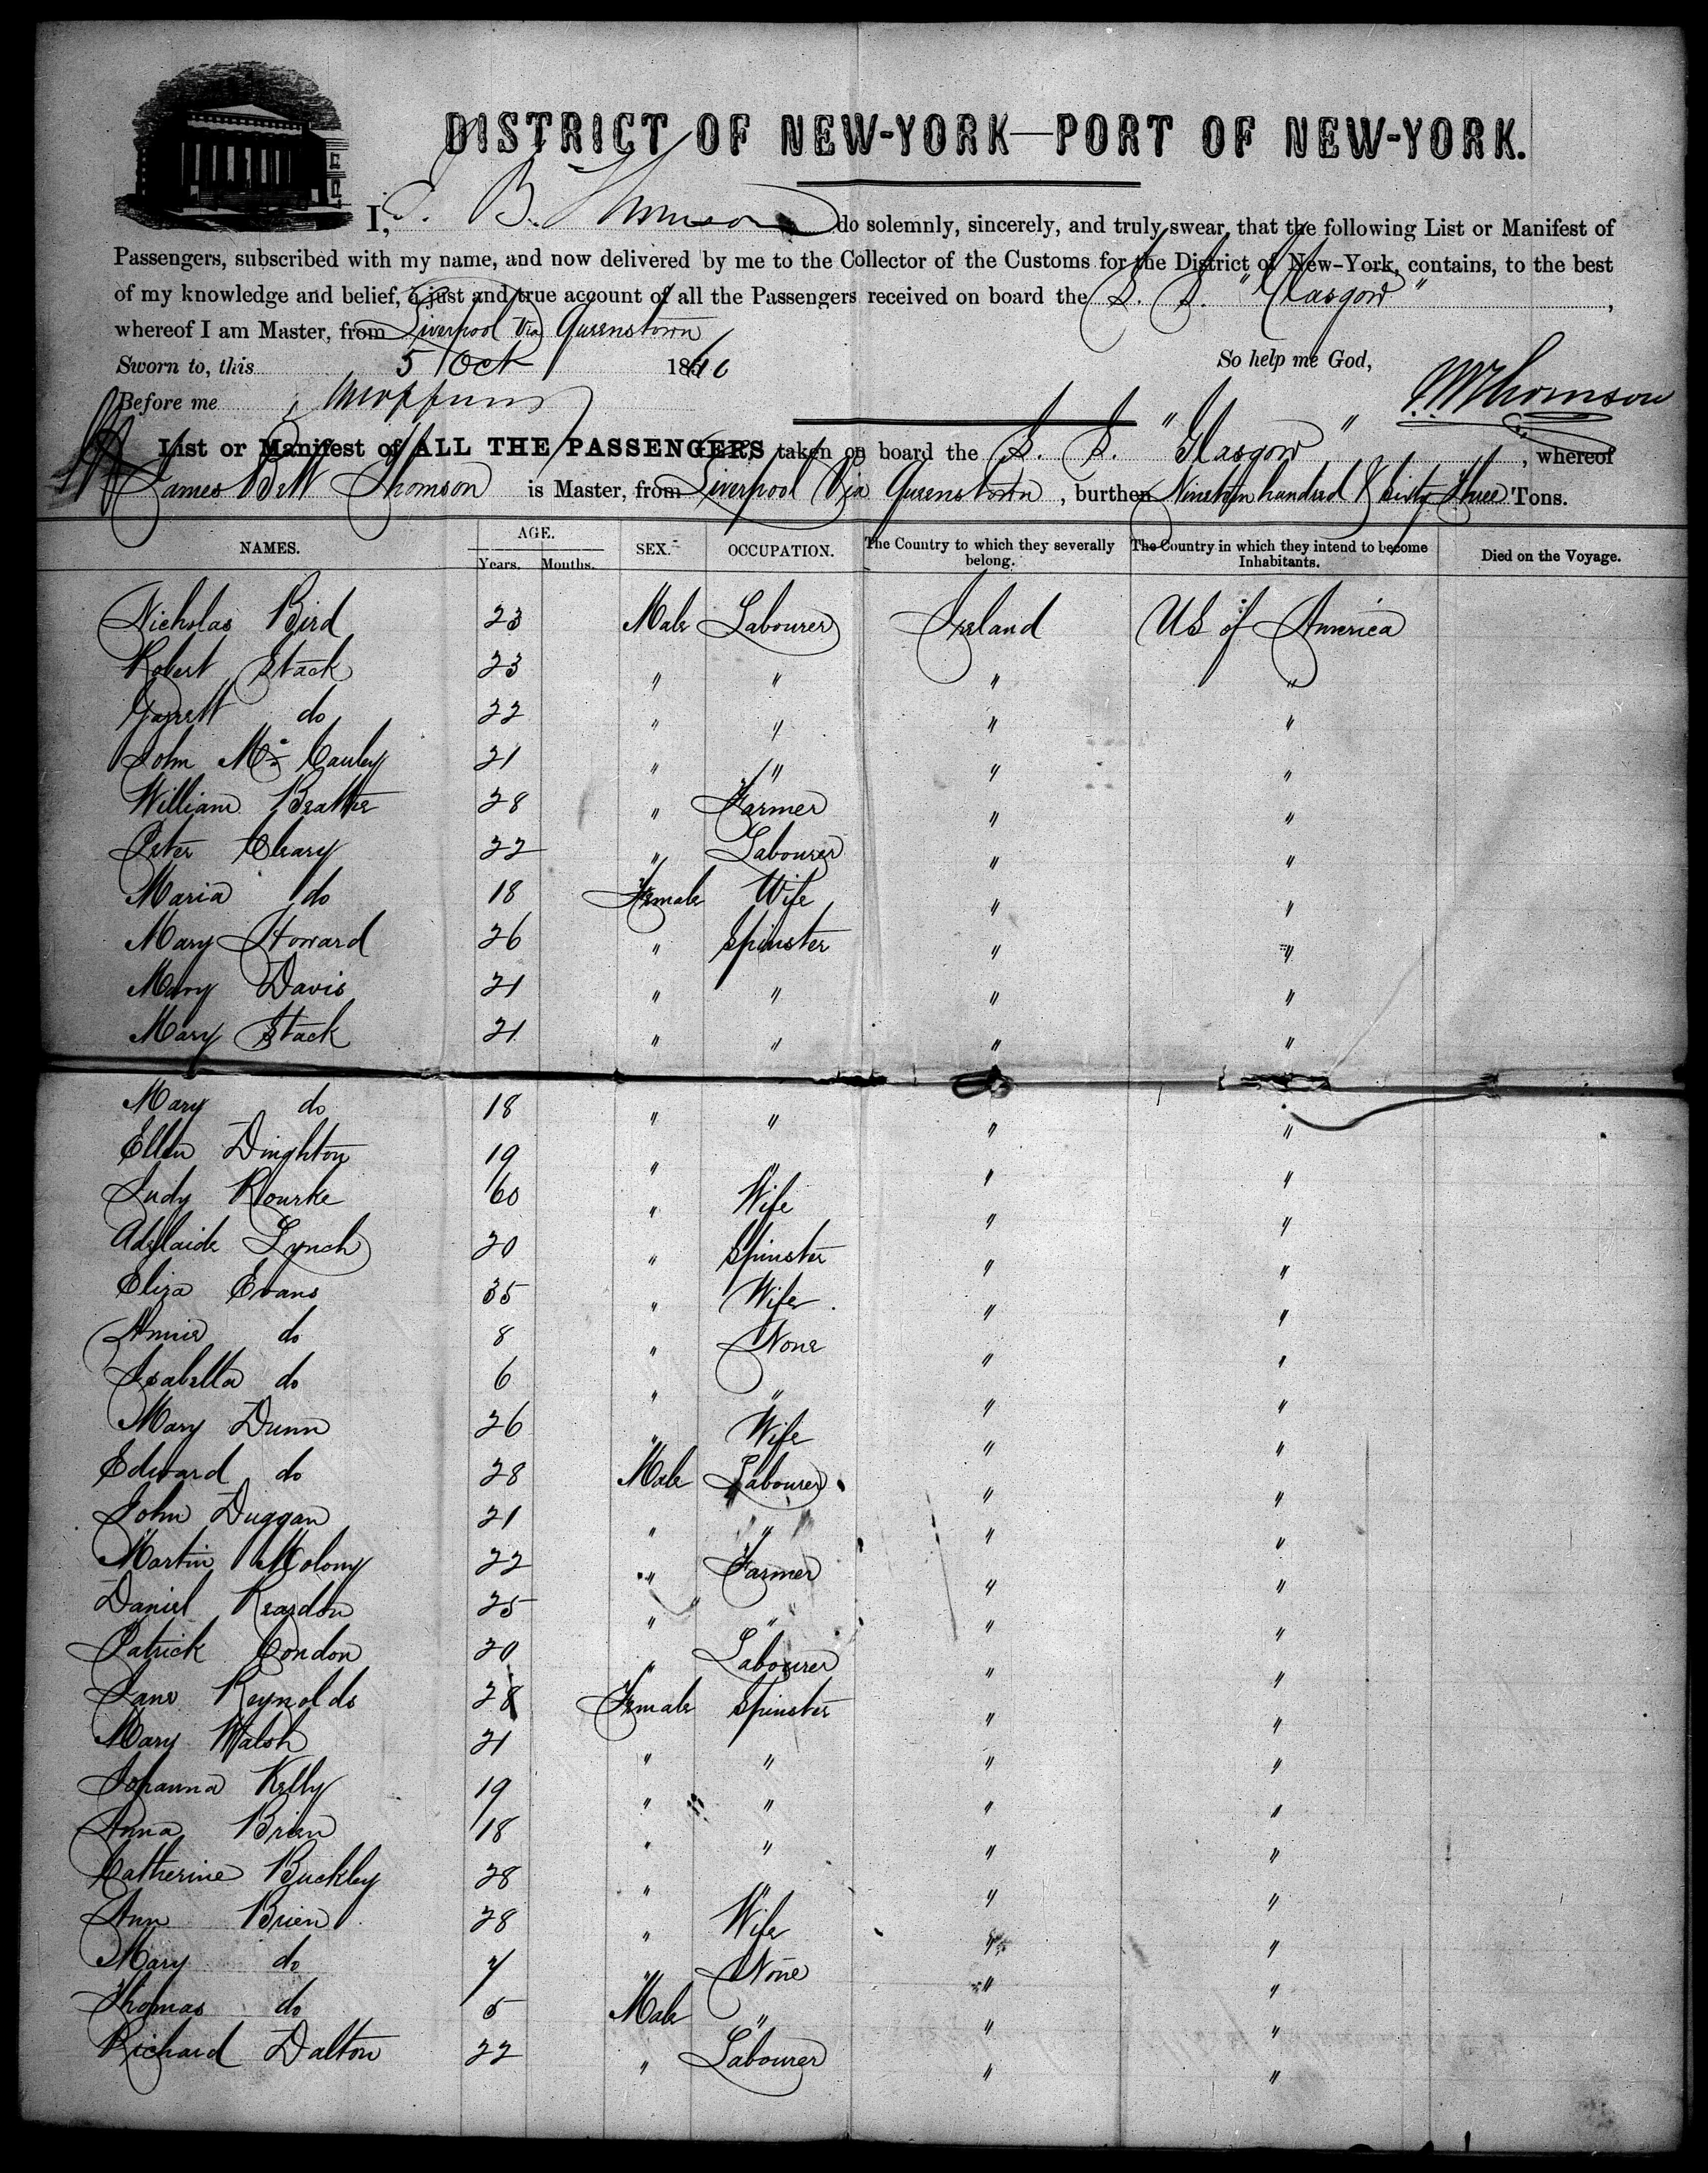 DISTRICT OF NEW-YORK—PORT OF NEW-YORK.
I, J. B. Thomson do solemnly, sincerely, and truly swear, that the following List or Manifest of
Passengers, subscribed with my name, and now delivered by me to the Collector of the Customs for the District of New-York, contains, to the best
of my knowledge and belief, a just and true account of all the Passengers received on board the S. S. "Glasgow",
whereof I am Master, from Liverpool Via Queenstown
Sworn to, this 5 Oct 1866 So help me God,
Before me Thomson
List or Manifest of ALL THE PASSENGERS taken on board the S. S. "Glasgow", whereof
James Bett Thomson is Master, from Liverpool Via Queenstown, burthen Nineteen hundred & Sixty Three Tons.
NAMES. AGE. Years. Months. SEX. OCCUPATION. The Country to which they severally belong. The Country in which they intend to become Inhabitants. Died on the Voyage.
Nicholas Bird 23 Male Labourer Ireland US of America
Robert Stack 23 " " " "
Garrett do 22 " " " "
John Mc Cauley 21 " " " "
William 28 " Farmer " "
Peter Cleary 22 " Labourer " "
Maria do 18 Female Wife " "
Mary Howard 26 " Spinster " "
Mary Davis 21 " " " "
Mary Stack 21 " " " "
Mary do 18 " " " "
Ellen Dinghton 19 " " " "
Judy Rourke 60 " Wife " "
Adelaide Lynch 20 " Spinster " "
Eliza Evans 35 " Wife " "
Annie do 8 " None " "
Isabella do 6 " " " "
Mary Dunn 26 " Wife " "
Edward do 28 Male Labourer " "
John Duggan 21 " " " "
Martin Molony 22 " Farmer " "
Daniel Reardon 25 " " " "
Patrick Condon 20 " Labourer " "
Jane Reynolds 28 Female Spinster " "
Mary Walsh 21 " " " "
Johanna Kelly 19 " " " "
Anna Brien 18 " " " "
Catherine Buckley 28 " " " "
Ann Brien 28 " Wife " "
Mary do 7 " None " "
Thomas do 5 Male " " "
Richard Dalton 22 " Labourer " "